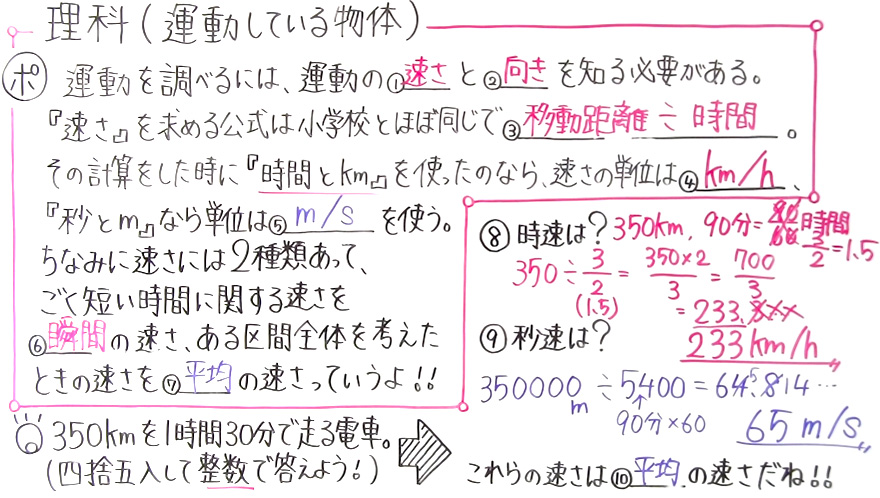 理科(運動している物体)
ポ 運動を調べるには、運動の①速さと②向きを知る必要がある。
『速さ』を求める公式は小学校とほぼ同じで③移動距離÷時間。
その計算をした時に『時間とkm』を使ったのなら、速さの単位は④km/h、
『秒とm』なら単位は⑤m/sを使う。
ちなみに速さには2種類あって、
ごく短い時間に関する速さを
⑥瞬間の速さ、ある区間全体を考えた
ときの速さを⑦平均の速さっていうよ!!
350kmを1時間30分で走る電車。
(四捨五入して整数で答えよう!)
⑧時速は? 350km, 90分=90/60時間
3/2=1.5
350÷3/2=350×2/3=700/3
(1.5)
=233.xxx
233km/h
⑨秒速は?
350000m÷5400=64.814…
5
90分×60
65m/s
これらの速さは⑩平均の速さだね!!